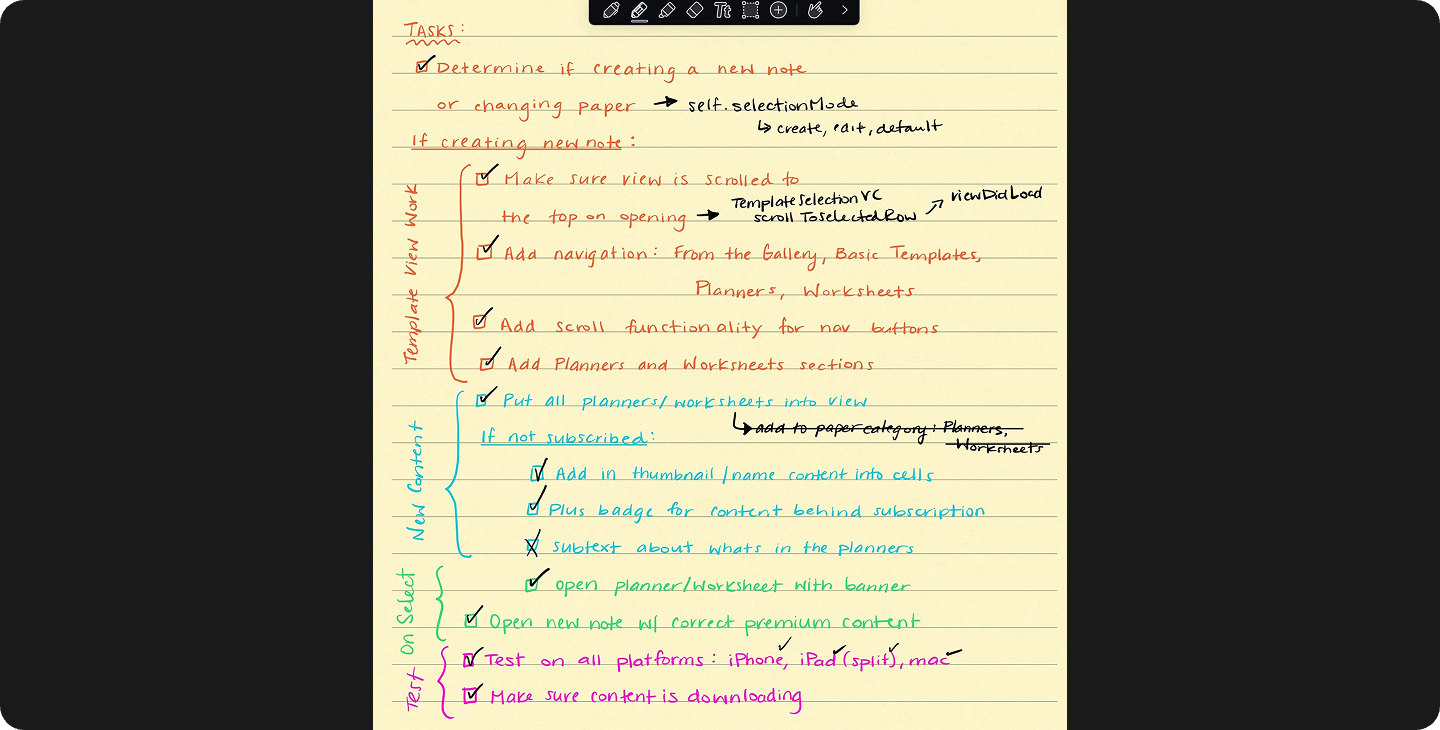 TASKS:
Determine if creating a new note
or changing paper → self.selectionMode
↳ create, edit, default
If creating new note:
Template View Work
Make sure view is scrolled to
the top on opening → TemplateSelectionVC
scrollToSelectedRow ↗ viewDidLoad
Add navigation: From the Gallery, Basic Templates,
Planners, Worksheets
Add scroll functionality for nav buttons
Add Planners and Worksheets sections
New Content
Put all planners/worksheets into view
↳ add to paper category: Planners,
Worksheets
If not subscribed:
Add in thumbnail/name content into cells
Plus badge for content behind subscription
subtext about whats in the planners
On Select
open planner/worksheet with banner
Open new note w/ correct premium content
Test
Test on all platforms: iPhone, iPad (split), mac
Make sure content is downloading